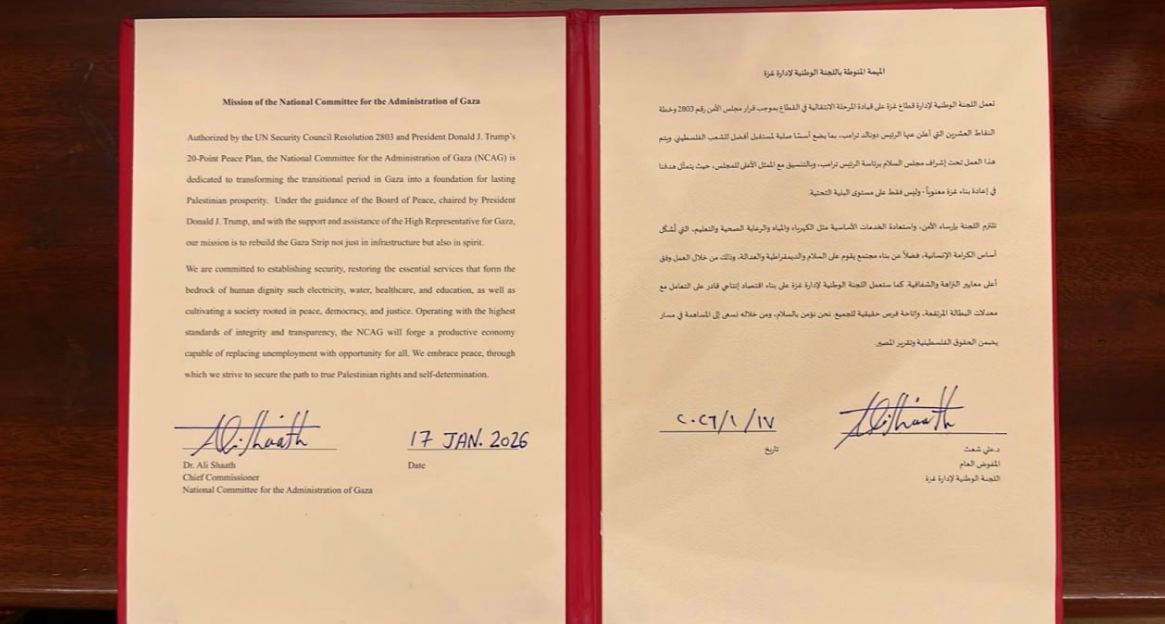 Mission of the National Committee for the Administration of Gaza
Authorized by the UN Security Council Resolution 2803 and President Donald J. Trump's
20-Point Peace Plan, the National Committee for the Administration of Gaza (NCAG) is
dedicated to transforming the transitional period in Gaza into a foundation for lasting
Palestinian prosperity. Under the guidance of the Board of Peace, chaired by President
Donald J. Trump, and with the support and assistance of the High Representative for Gaza,
our mission is to rebuild the Gaza Strip not just in infrastructure but also in spirit.
We are committed to establishing security, restoring the essential services that form the
bedrock of human dignity such electricity, water, healthcare, and education, as well as
cultivating a society rooted in peace, democracy, and justice. Operating with the highest
standards of integrity and transparency, the NCAG will forge a productive economy
capable of replacing unemployment with opportunity for all. We embrace peace, through
which we strive to secure the path to true Palestinian rights and self-determination.
Ali Shaath
17 JAN. 2026
Dr. Ali Shaath
Date
Chief Commissioner
National Committee for the Administration of Gaza
المهمة المنوطة باللجنة الوطنية لإدارة غزة
تعمل اللجنة الوطنية لإدارة قطاع غزة على قيادة المرحلة الانتقالية في القطاع بموجب قرار مجلس الأمن رقم 2803 وخطة
النقاط العشرين التي أعلن عنها الرئيس دونالد ترامب، بما يضع أسسًا صلبة لمستقبل أفضل للشعب الفلسطيني. ويتم
هذا العمل تحت إشراف مجلس السلام برئاسة الرئيس ترامب، وبالتنسيق مع الممثل الأعلى للمجلس، حيث يتمثّل هدفنا
في إعادة بناء غزة معنوياً - وليس فقط على مستوى البنية التحتية.
تلتزم اللجنة بإرساء الأمن، واستعادة الخدمات الأساسية مثل الكهرباء والمياه والرعاية الصحية والتعليم، التي تُشكّل
أساس الكرامة الإنسانية، فضلاً عن بناء مجتمع يقوم على السلام والديمقراطية والعدالة، وذلك من خلال العمل وفق
أعلى معايير النزاهة والشفافية. كما ستعمل اللجنة الوطنية لإدارة غزة على بناء اقتصاد إنتاجي قادر على التعامل مع
معدلات البطالة المرتفعة، وإتاحة فرص حقيقية للجميع. نحن نؤمن بالسلام، ومن خلاله نسعى إلى المساهمة في مسار
يضمن الحقوق الفلسطينية وتقرير المصير.
Ali Shaath
٢٠٢٦/١/١٧
د.علي شعث
تاريخ
المفوض العام
اللجنة الوطنية لإدارة غزة